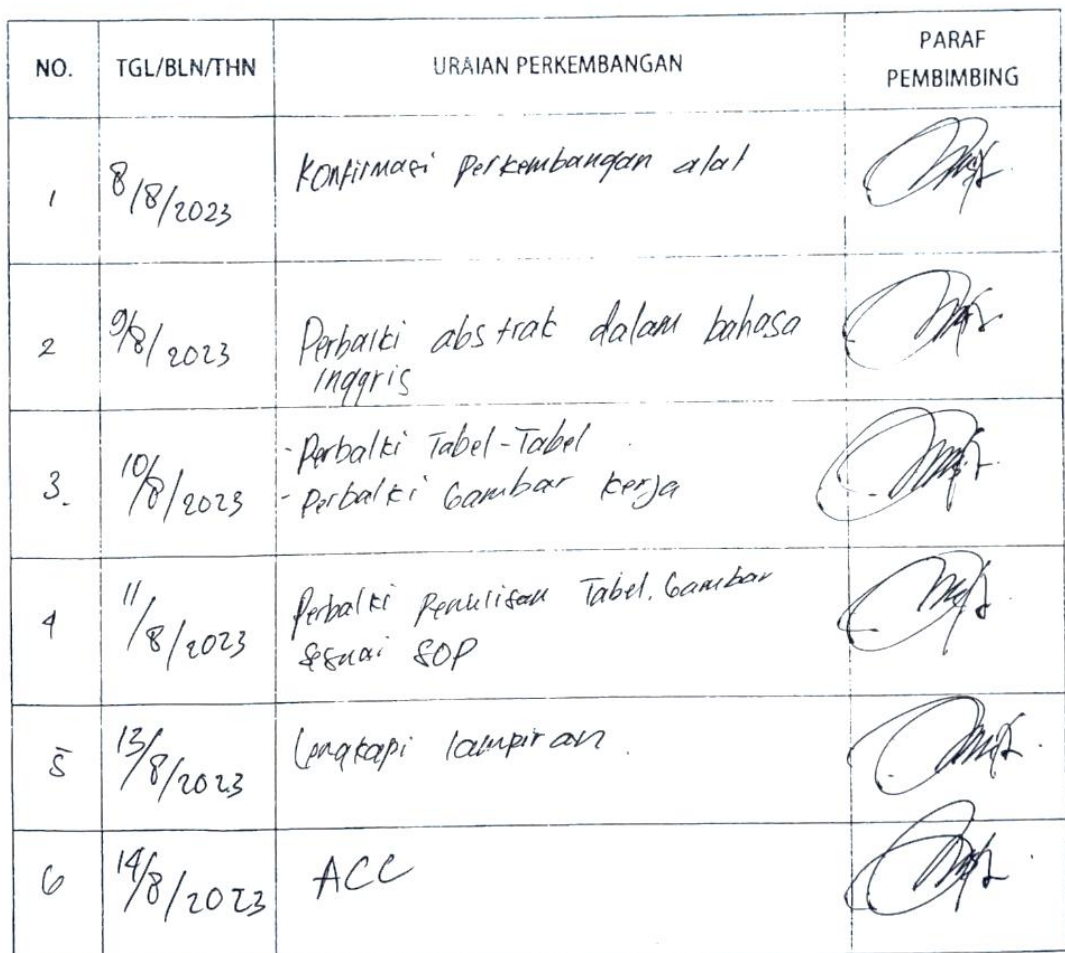 NO. TGL/BLN/THN URAIAN PERKEMBANGAN PARAF
PEMBIMBING
1 8/8/2023 Konfirmasi Perkembangan alat
2 9/8/2023 Perbaiki abstrak dalam bahasa
inggris
3. 10/8/2023 - Perbaiki Tabel-Tabel
- Perbaiki Gambar kerja
4 11/8/2023 Perbaiki Penulisan Tabel. Gambar
sesuai SOP
5 13/8/2023 Lengkapi lampiran.
6 14/8/2023 ACC